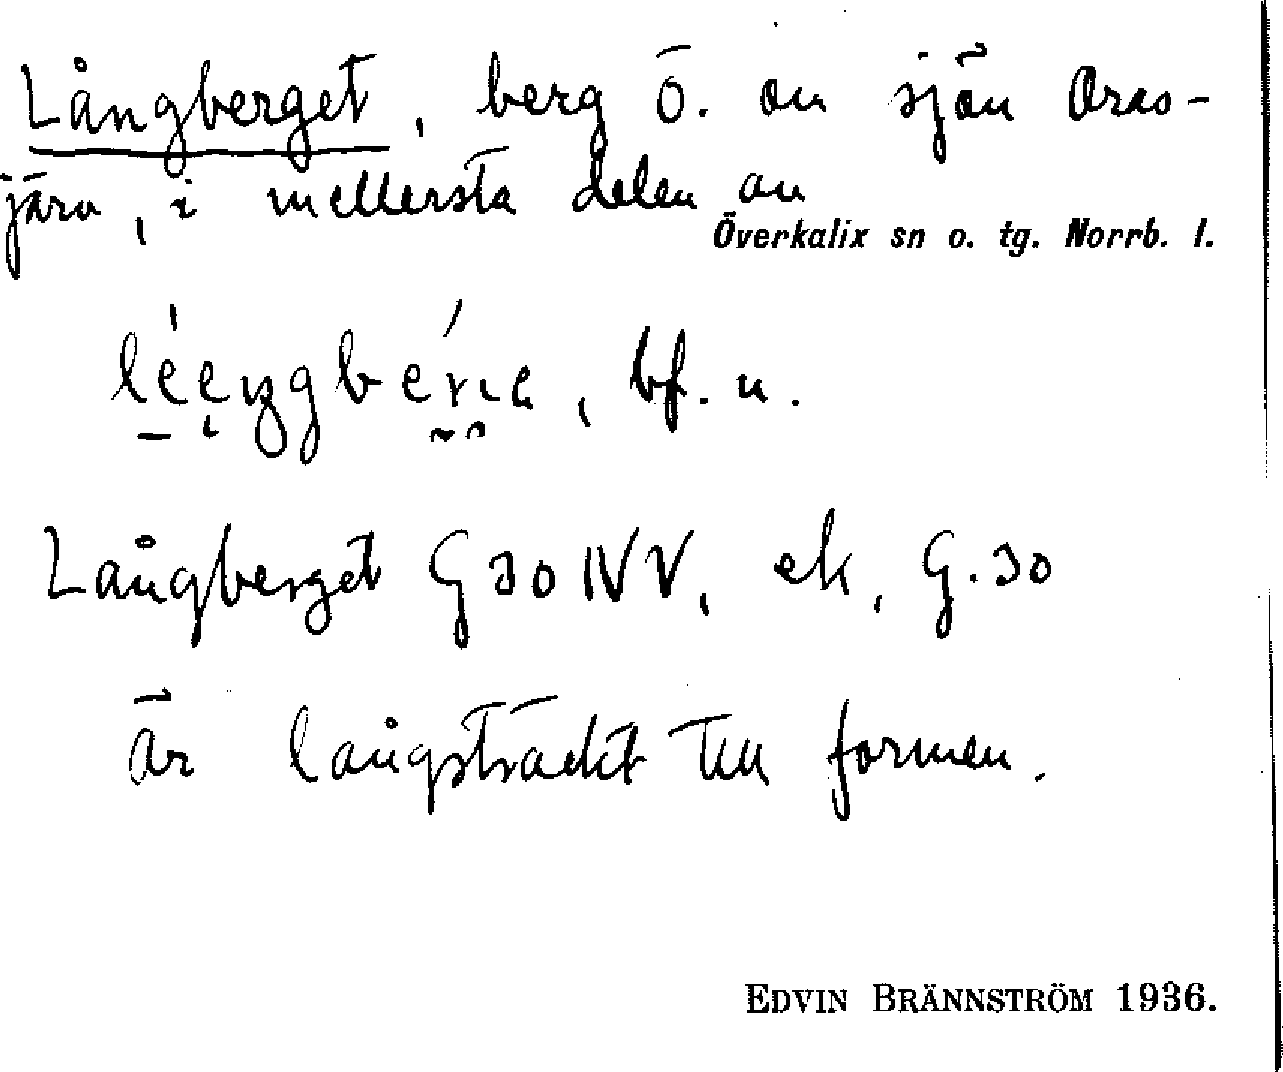 Långberget, berg ö. om sjön Oras-
järv, i mellersta delen av
Överkalix sn o. tg. Norrb. l.
bf. n.
Långberget G 30 NV, ek, G. 30
är långsträckt till formen.
EDVIN BRÄNNSTRÖM 1936.